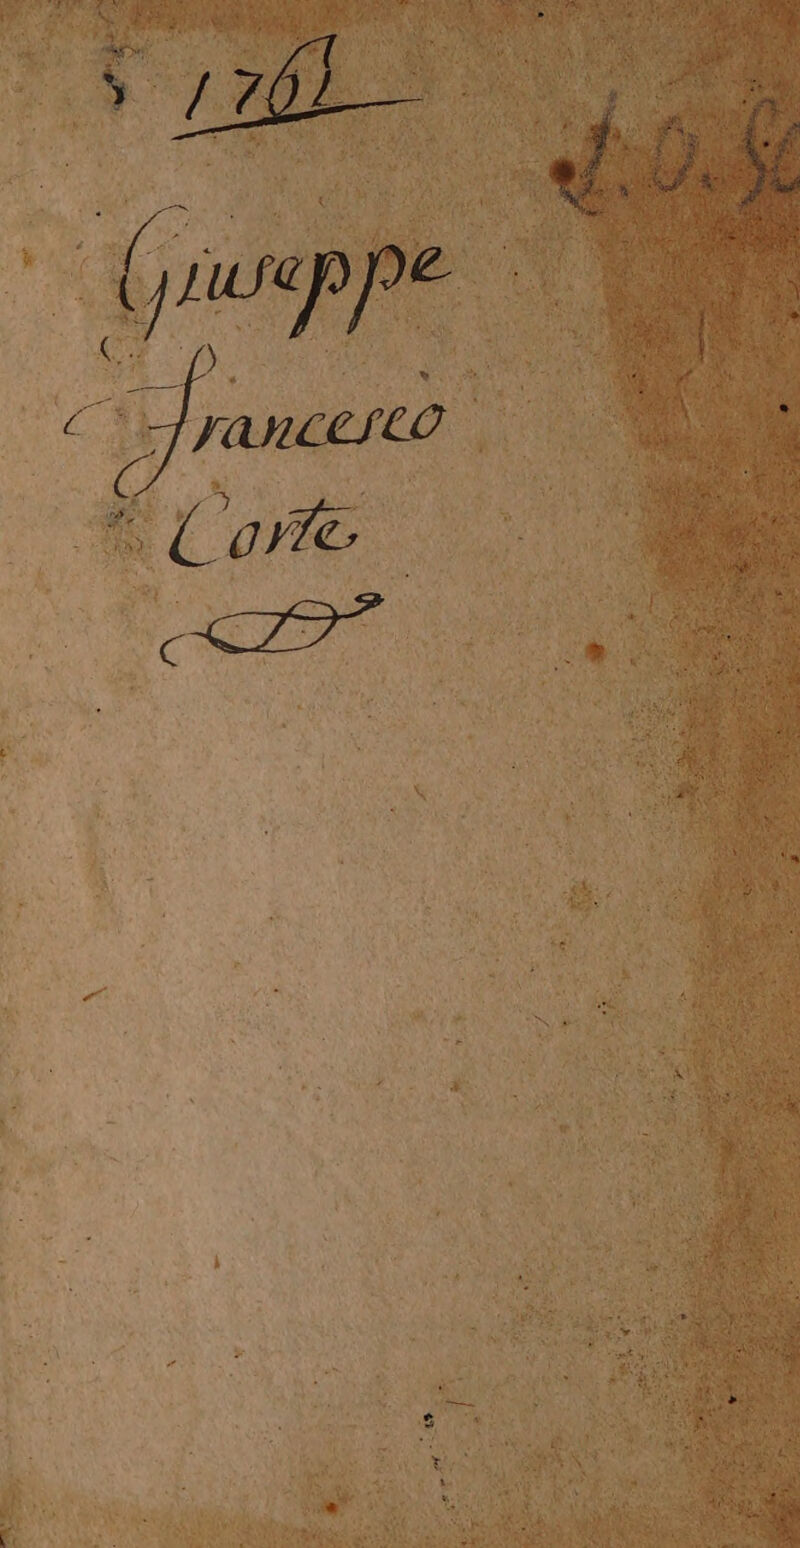 1761
L. 0. 50
Giuseppe
Francesco
Corte